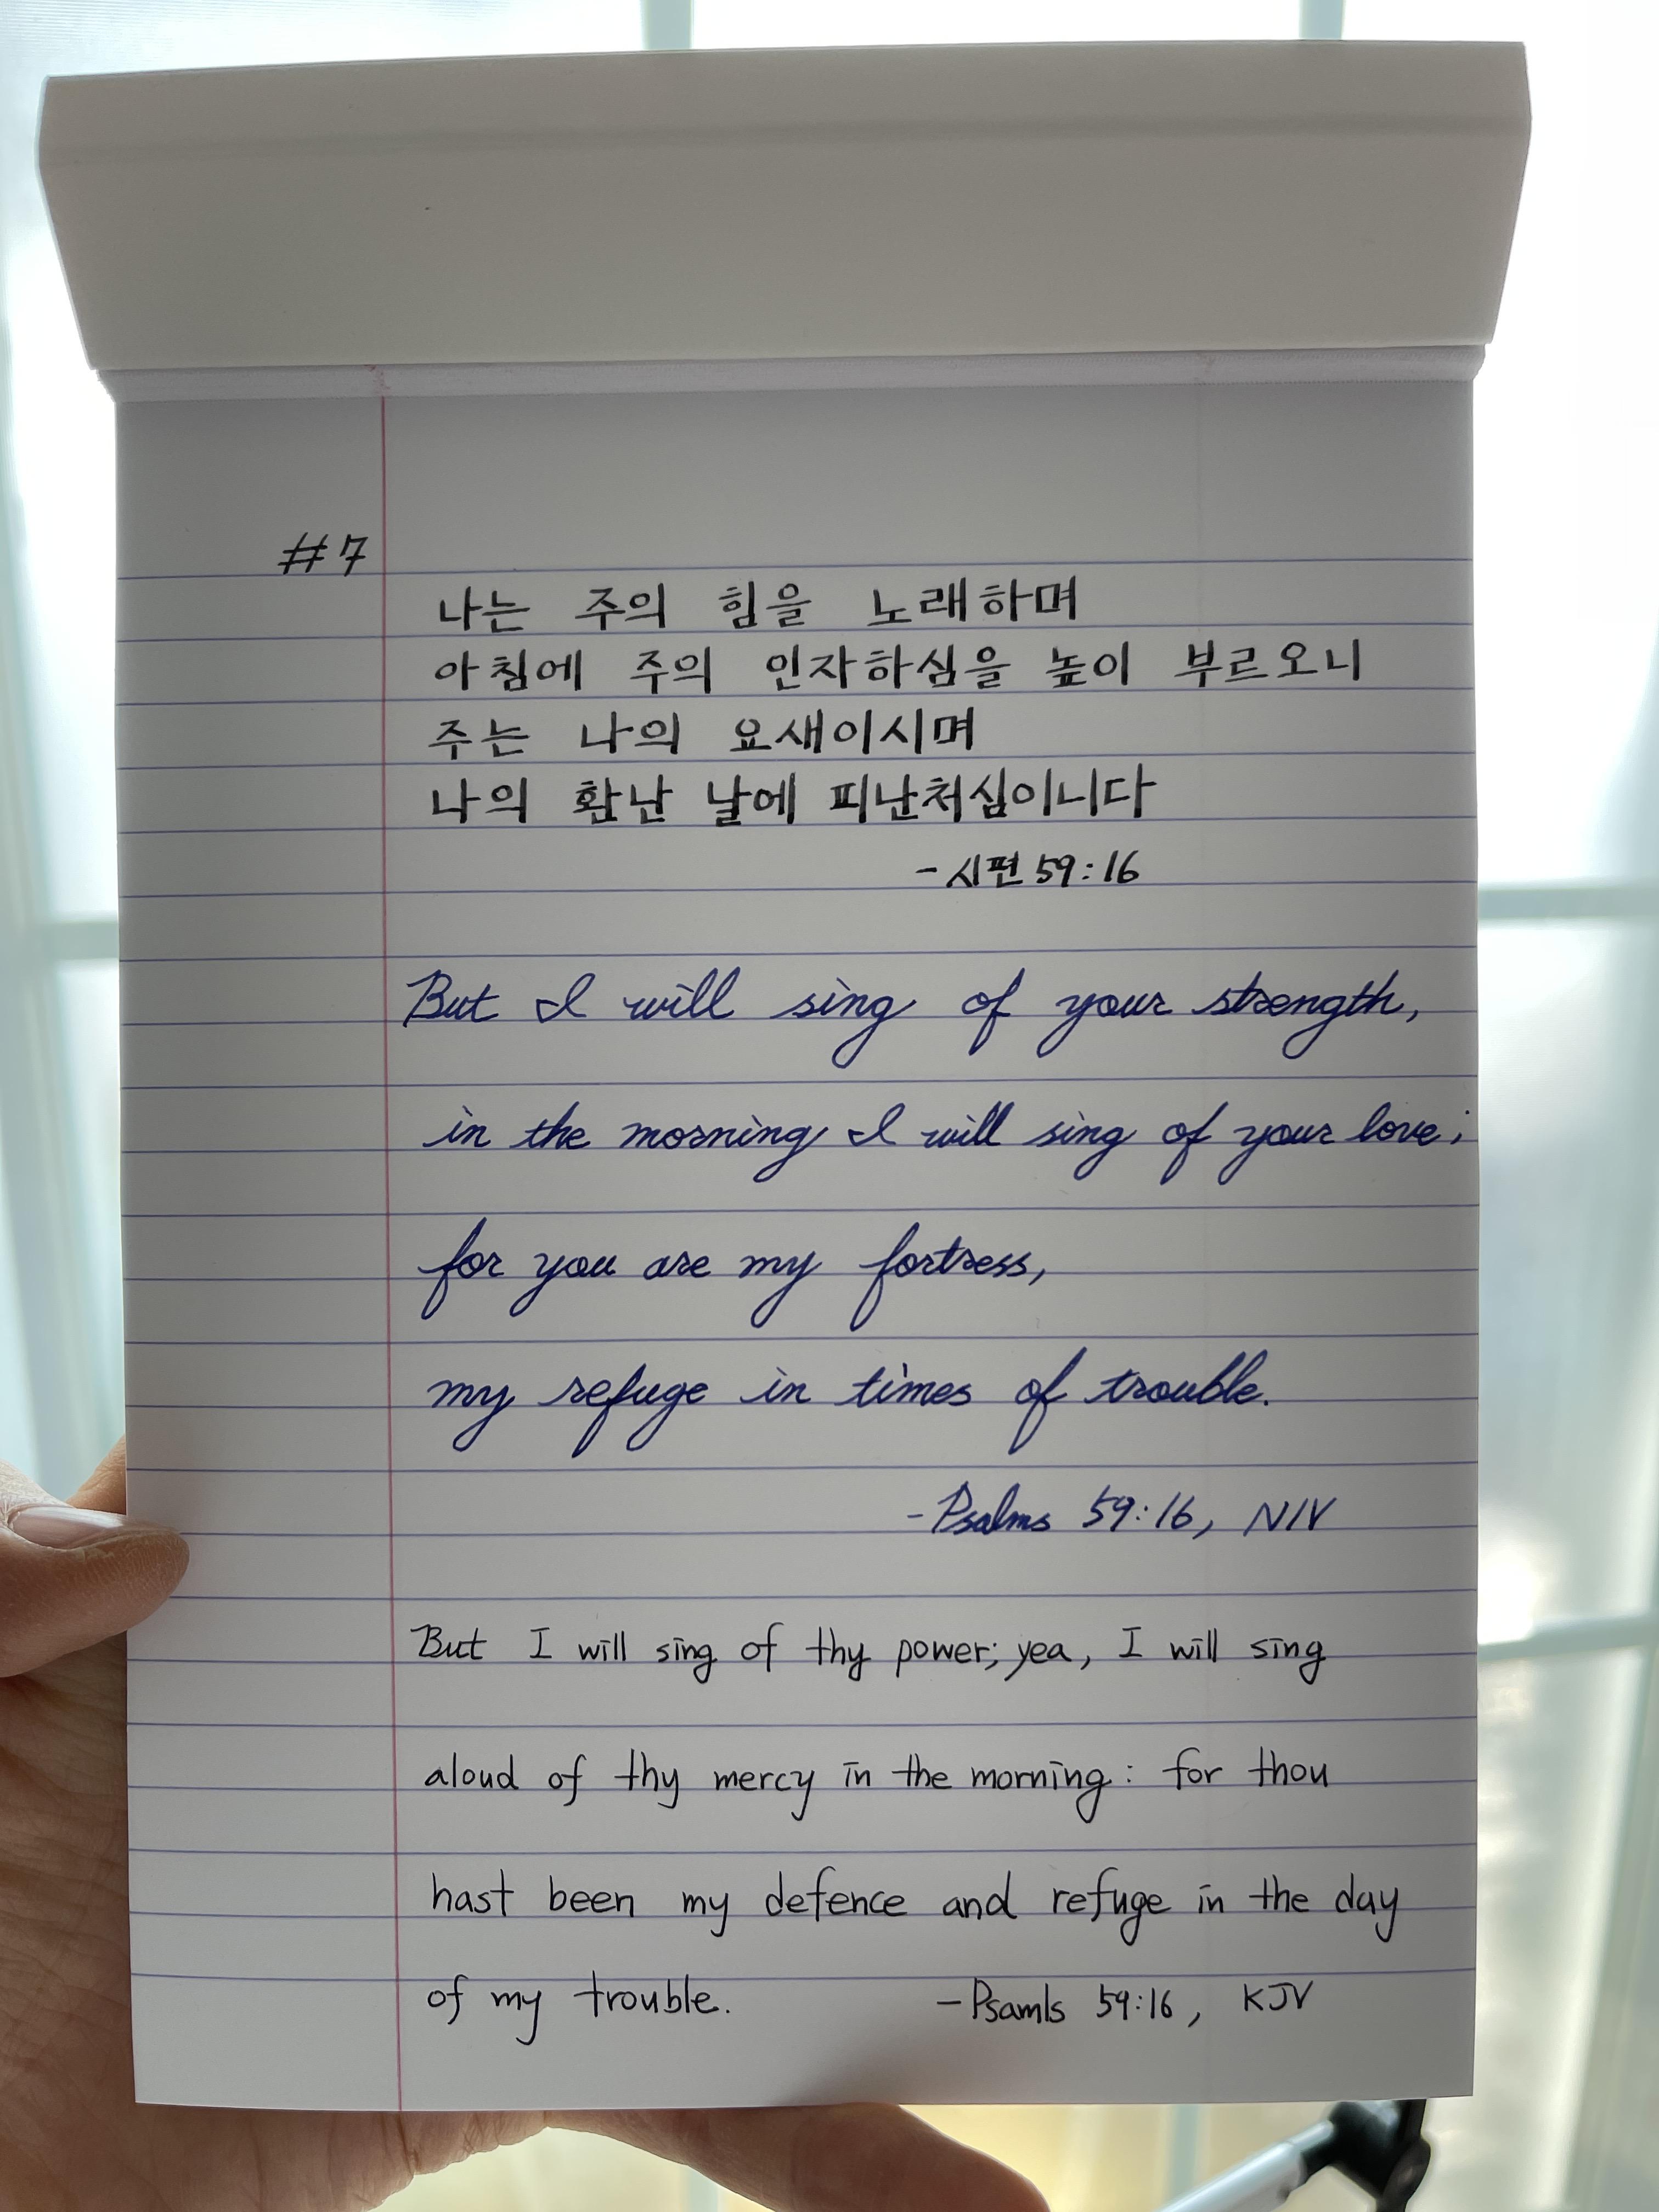 #7
나는 주의 힘을 노래하며
아침에 주의 인자하심을 높이 부르오니
주는 나의 요새이시며
나의 환난 날에 피난처심이니다
-시편 59:16
But I will sing of your strength,
in the morning I will sing of your love;
for you are my fortress,
my refuge in times of trouble.
-Psalms 59:16, NIV
But I will sing of thy power; yea, I will sing
aloud of thy mercy in the morning: for thou
hast been my defence and refuge in the day
of my trouble. -Psamls 59:16, KJV